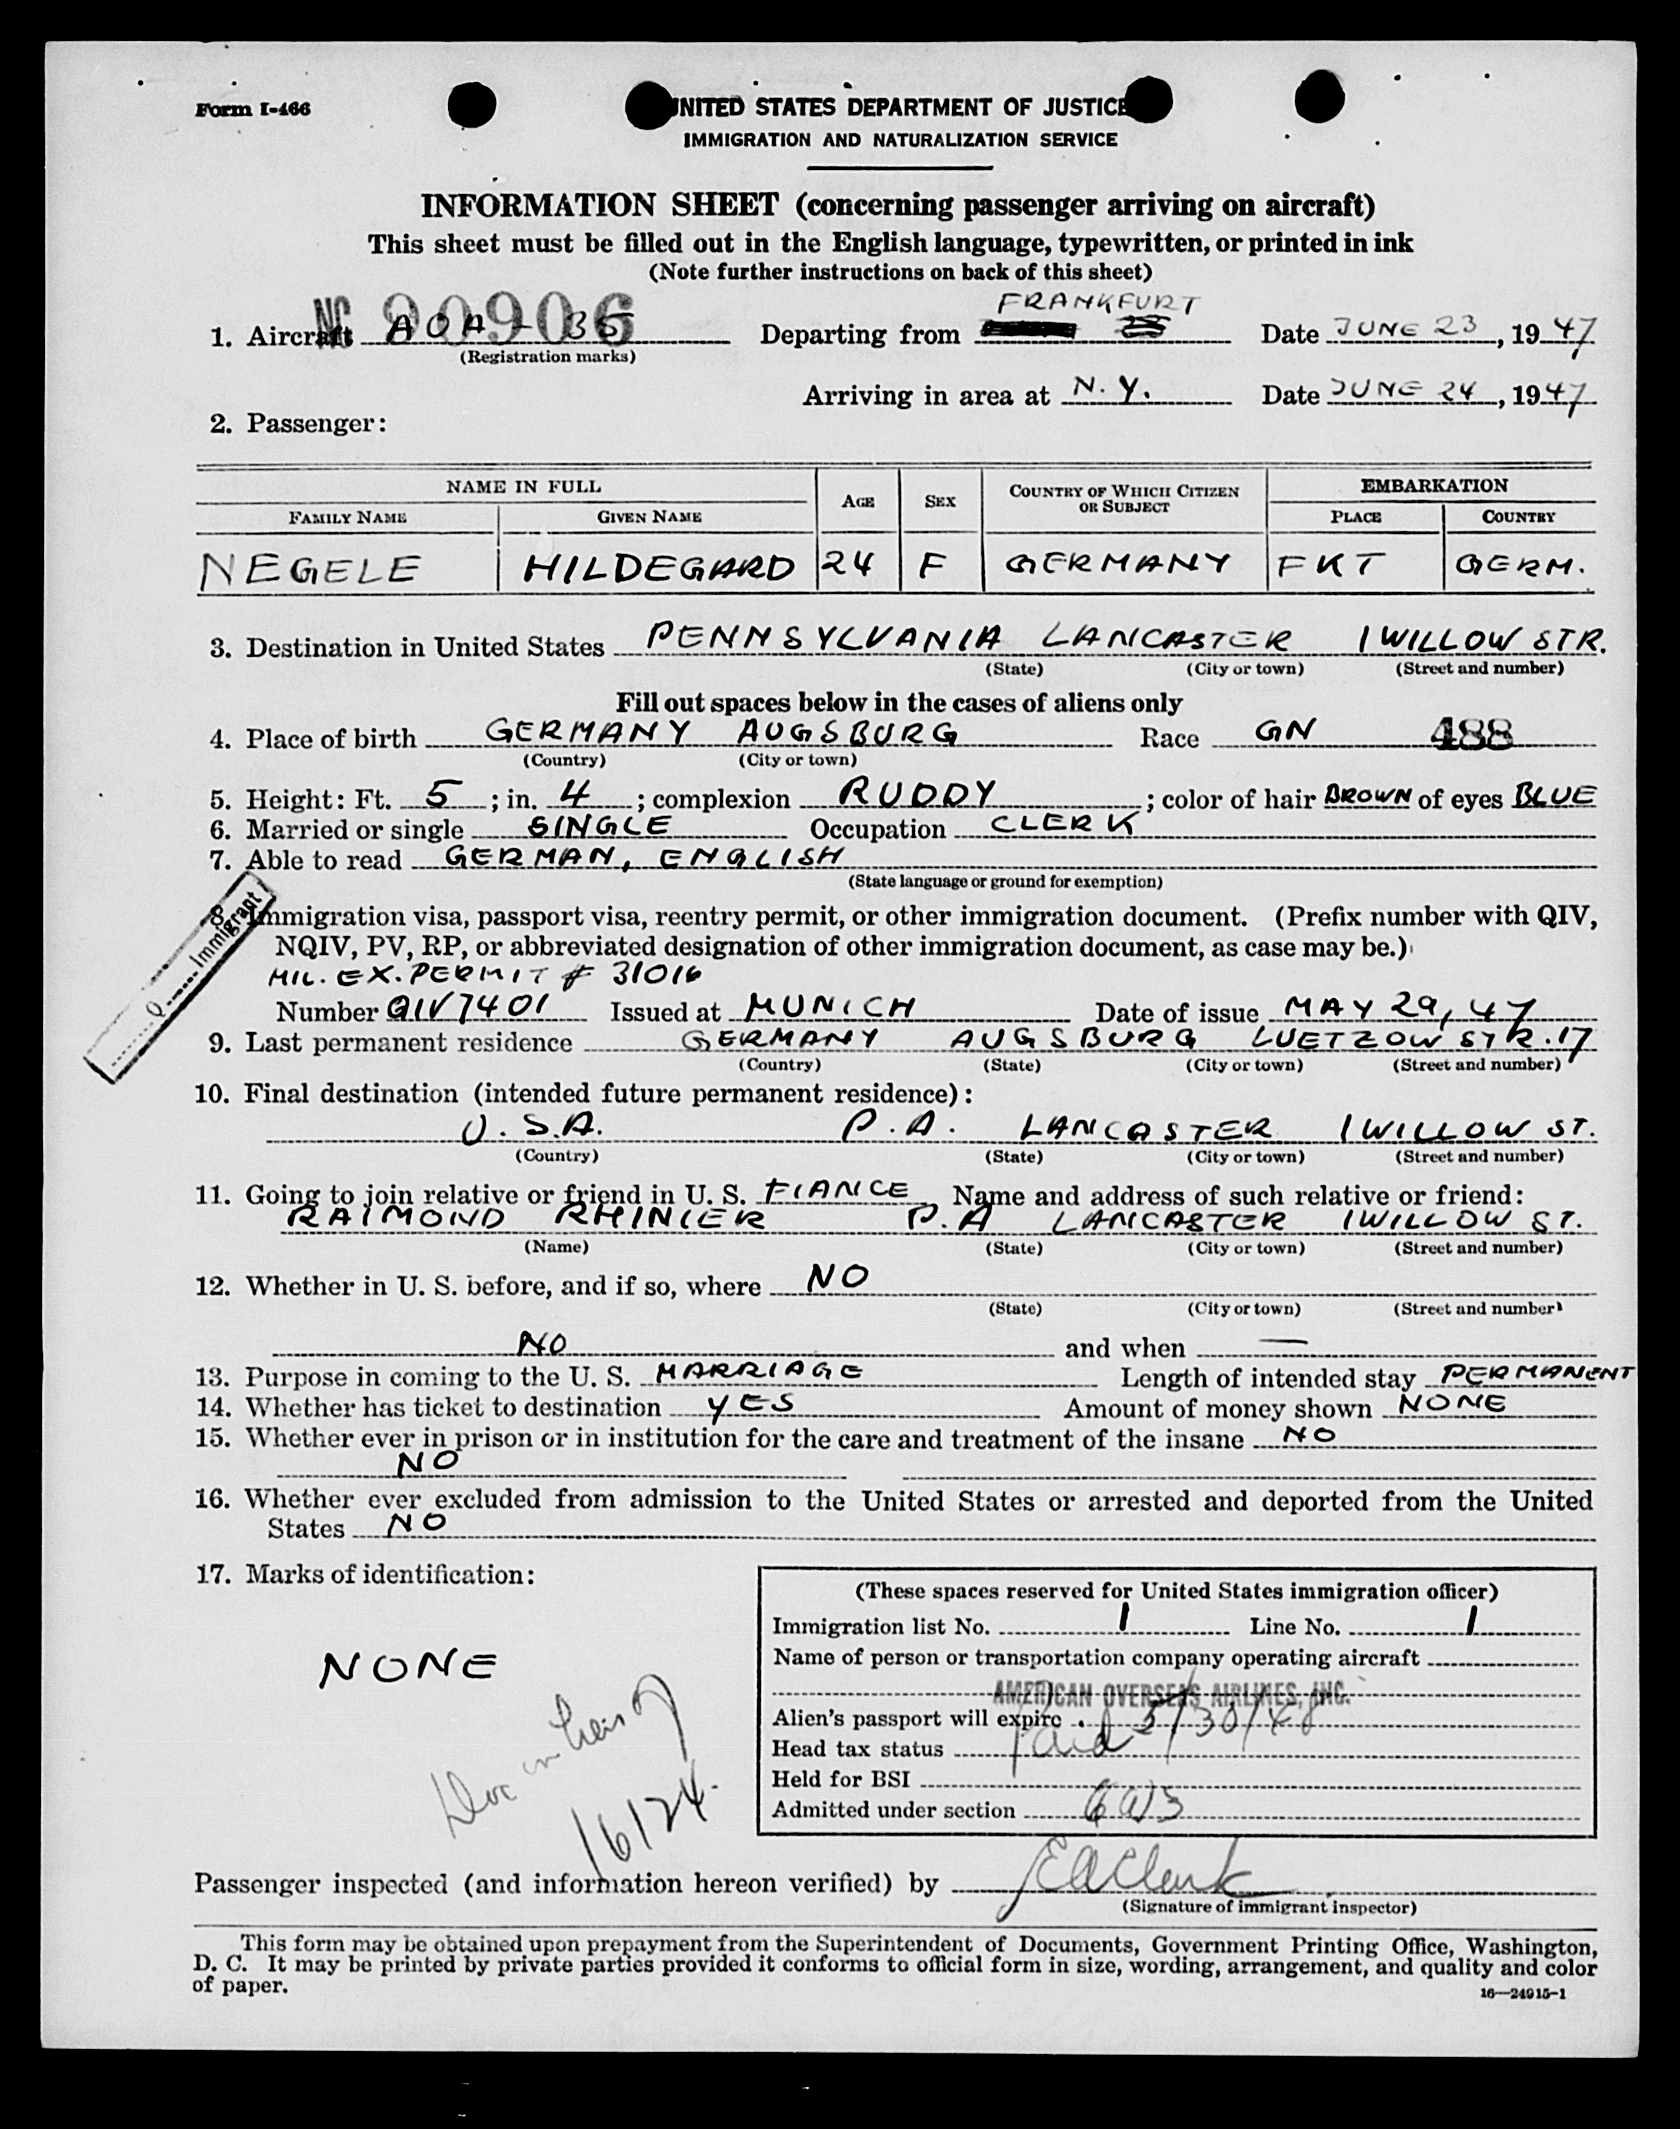 Form I-466
UNITED STATES DEPARTMENT OF JUSTICE
IMMIGRATION AND NATURALIZATION SERVICE
INFORMATION SHEET (concerning passenger arriving on aircraft)
This sheet must be filled out in the English language, typewritten, or printed in ink
(Note further instructions on back of this sheet)
NC 90906
FRANKFURT
1. Aircraft AOA - 35 Departing from Date JUNE 23, 1947
(Registration marks)
Arriving in area at N.Y. Date JUNE 24, 1947
2. Passenger:
NAME IN FULL AGE SEX COUNTRY OF WHICH CITIZEN OR SUBJECT EMBARKATION
FAMILY NAME GIVEN NAME PLACE COUNTRY
NEGELE HILDEGARD 24 F GERMANY FKT GERM.
3. Destination in United States PENNSYLVANIA LANCASTER 1 WILLOW STR.
(State) (City or town) (Street and number)
Fill out spaces below in the cases of aliens only
4. Place of birth GERMANY AUGSBURG Race GN 488
(Country) (City or town)
5. Height: Ft. 5; in. 4; complexion RUDDY; color of hair BROWN of eyes BLUE
6. Married or single SINGLE Occupation CLERK
7. Able to read GERMAN, ENGLISH
(State language or ground for exemption)
Q Immigrant
8. Immigration visa, passport visa, reentry permit, or other immigration document. (Prefix number with QIV,
NQIV, PV, RP, or abbreviated designation of other immigration document, as case may be.)
MIL. EX. PERMIT # 31016
Number QIV 7401 Issued at MUNICH Date of issue MAY 29, 47
9. Last permanent residence GERMANY AUGSBURG LUETZOW STR. 17
(Country) (State) (City or town) (Street and number)
10. Final destination (intended future permanent residence):
U.S.A. P.A. LANCASTER 1 WILLOW ST.
(Country) (State) (City or town) (Street and number)
11. Going to join relative or friend in U. S. FIANCE Name and address of such relative or friend:
RAIMOND RHINIER P.A LANCASTER 1 WILLOW ST.
(Name) (State) (City or town) (Street and number)
12. Whether in U. S. before, and if so, where NO
(State) (City or town) (Street and number)
NO and when —
13. Purpose in coming to the U. S. MARRIAGE Length of intended stay PERMANENT
14. Whether has ticket to destination YES Amount of money shown NONE
15. Whether ever in prison or in institution for the care and treatment of the insane NO
NO
16. Whether ever excluded from admission to the United States or arrested and deported from the United
States NO
17. Marks of identification:
NONE
6/24
(These spaces reserved for United States immigration officer)
Immigration list No. 1 Line No. 1
Name of person or transportation company operating aircraft
AMERICAN OVERSEAS AIRLINES, INC.
Alien's passport will expire 5/30/48
Head tax status Paid
Held for BSI
Admitted under section
Passenger inspected (and information hereon verified) by EA Clark
(Signature of immigrant inspector)
This form may be obtained upon prepayment from the Superintendent of Documents, Government Printing Office, Washington,
D. C. It may be printed by private parties provided it conforms to official form in size, wording, arrangement, and quality and color
of paper.
16—24915-1